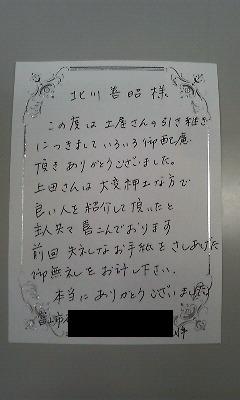 北川善昭様
この度は土屋さんの引き継ぎ
につきましていろいろ御配慮
頂きありがとうございました。
上田さんは大変紳士な方で
良い人を紹介して頂いたと
主人共々喜こんでおります
前回失礼なお手紙をさしあげた
御無礼をお許し下さい。
本当にありがとうございました
富山市